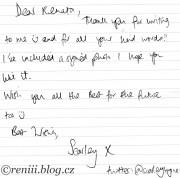 Dear Renata,
Thank you for writing
to me :) and for all your kind words!!
I've included a signed photo I hope you
like it.
Wish you all the Best for the future
to :)
Best Wishes,
Scarley X
©reniii.blog.cz